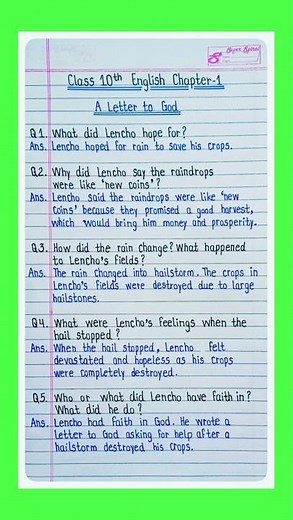 Super Spiral
Class 10th English Chapter-1
A Letter to God
Q1. What did Lencho hope for?
Ans. Lencho hoped for rain to save his crops.
Q2. Why did Lencho say the raindrops
were like 'new coins'?
Ans. Lencho said the raindrops were like 'new
coins' because they promised a good harvest,
which would bring him money and prosperity.
Q.3. How did the rain change? What happened
to Lencho's fields?
Ans. The rain changed into hailstorm. The crops in
Lencho's fields were destroyed due to large
hailstones.
Q4. What were Lencho's feelings when the
hail stopped?
Ans. When the hail stopped, Lencho felt
devastated and hopeless as his crops
were completely destroyed.
Q.5. Who or what did Lencho have faith in?
What did he do?
Ans. Lencho had faith in God. He wrote a
Letter to God asking for help after a
hailstorm destroyed his crops.